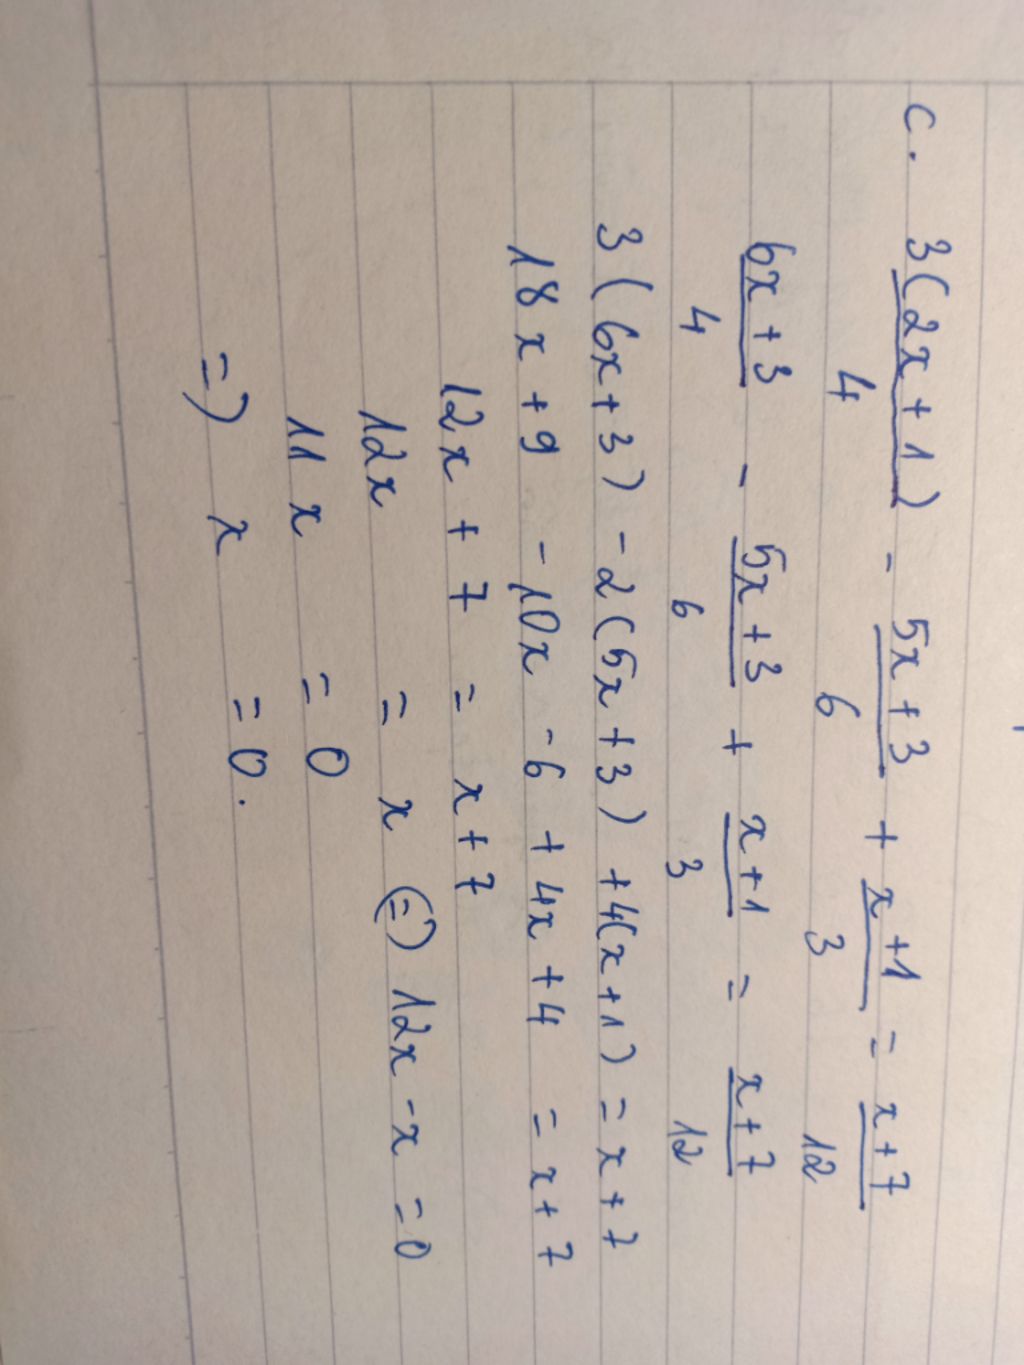 c. 3(2x+1)/4 - 5x+3/6 + x+1/3 = x+7/12
6x+3/4 - 5x+3/6 + x+1/3 = x+7/12
3(6x+3) - 2(5x+3) + 4(x+1) = x+7
18x+9 - 10x - 6 + 4x + 4 = x+7
12x + 7 = x+7
12x = x (=) 12x - x = 0
11x = 0
=) x = 0.